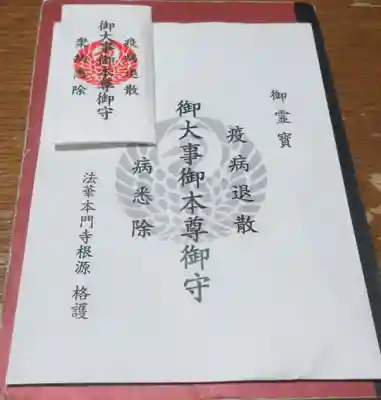 疫病退散
御大事御本尊御守
衆病悉除
御靈寶
疫病退散
御大事御本尊御守
病悉除
法華本門寺根源 格護